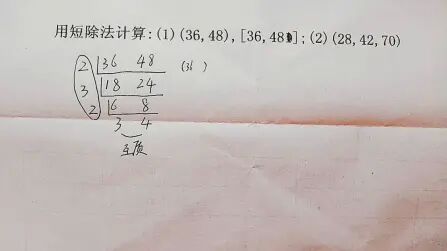 用短除法计算:(1)(36,48),[36,48];(2)(28,42,70)
2 36 48 (36 )
3 18 24
2 6 8
3 4
互质